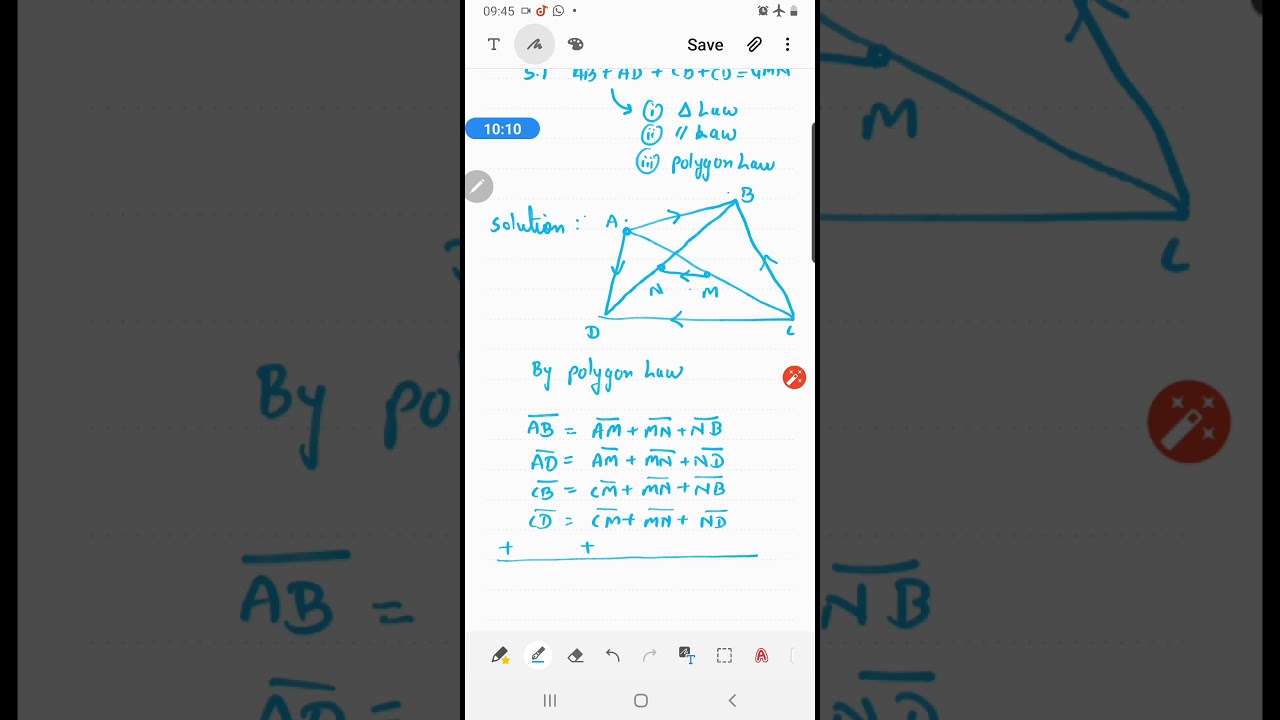 09:45
T Save
S.T AB + AD + CB + CD = 4MN
(i) Δ Law
10:10
(ii) // Law
(iii) polygon Law
Solution : A B
N M
D C
By polygon Law
A̅B̅ = A̅M̅ + M̅N̅ + N̅B̅
A̅D̅ = A̅M̅ + M̅N̅ + N̅D̅
C̅B̅ = C̅M̅ + M̅N̅ + N̅B̅
C̅D̅ = C̅M̅ + M̅N̅ + N̅D̅
+ +
T
A
M
C
By po
A̅B̅ =
N̅B̅
A̅D̅
N̅D̅